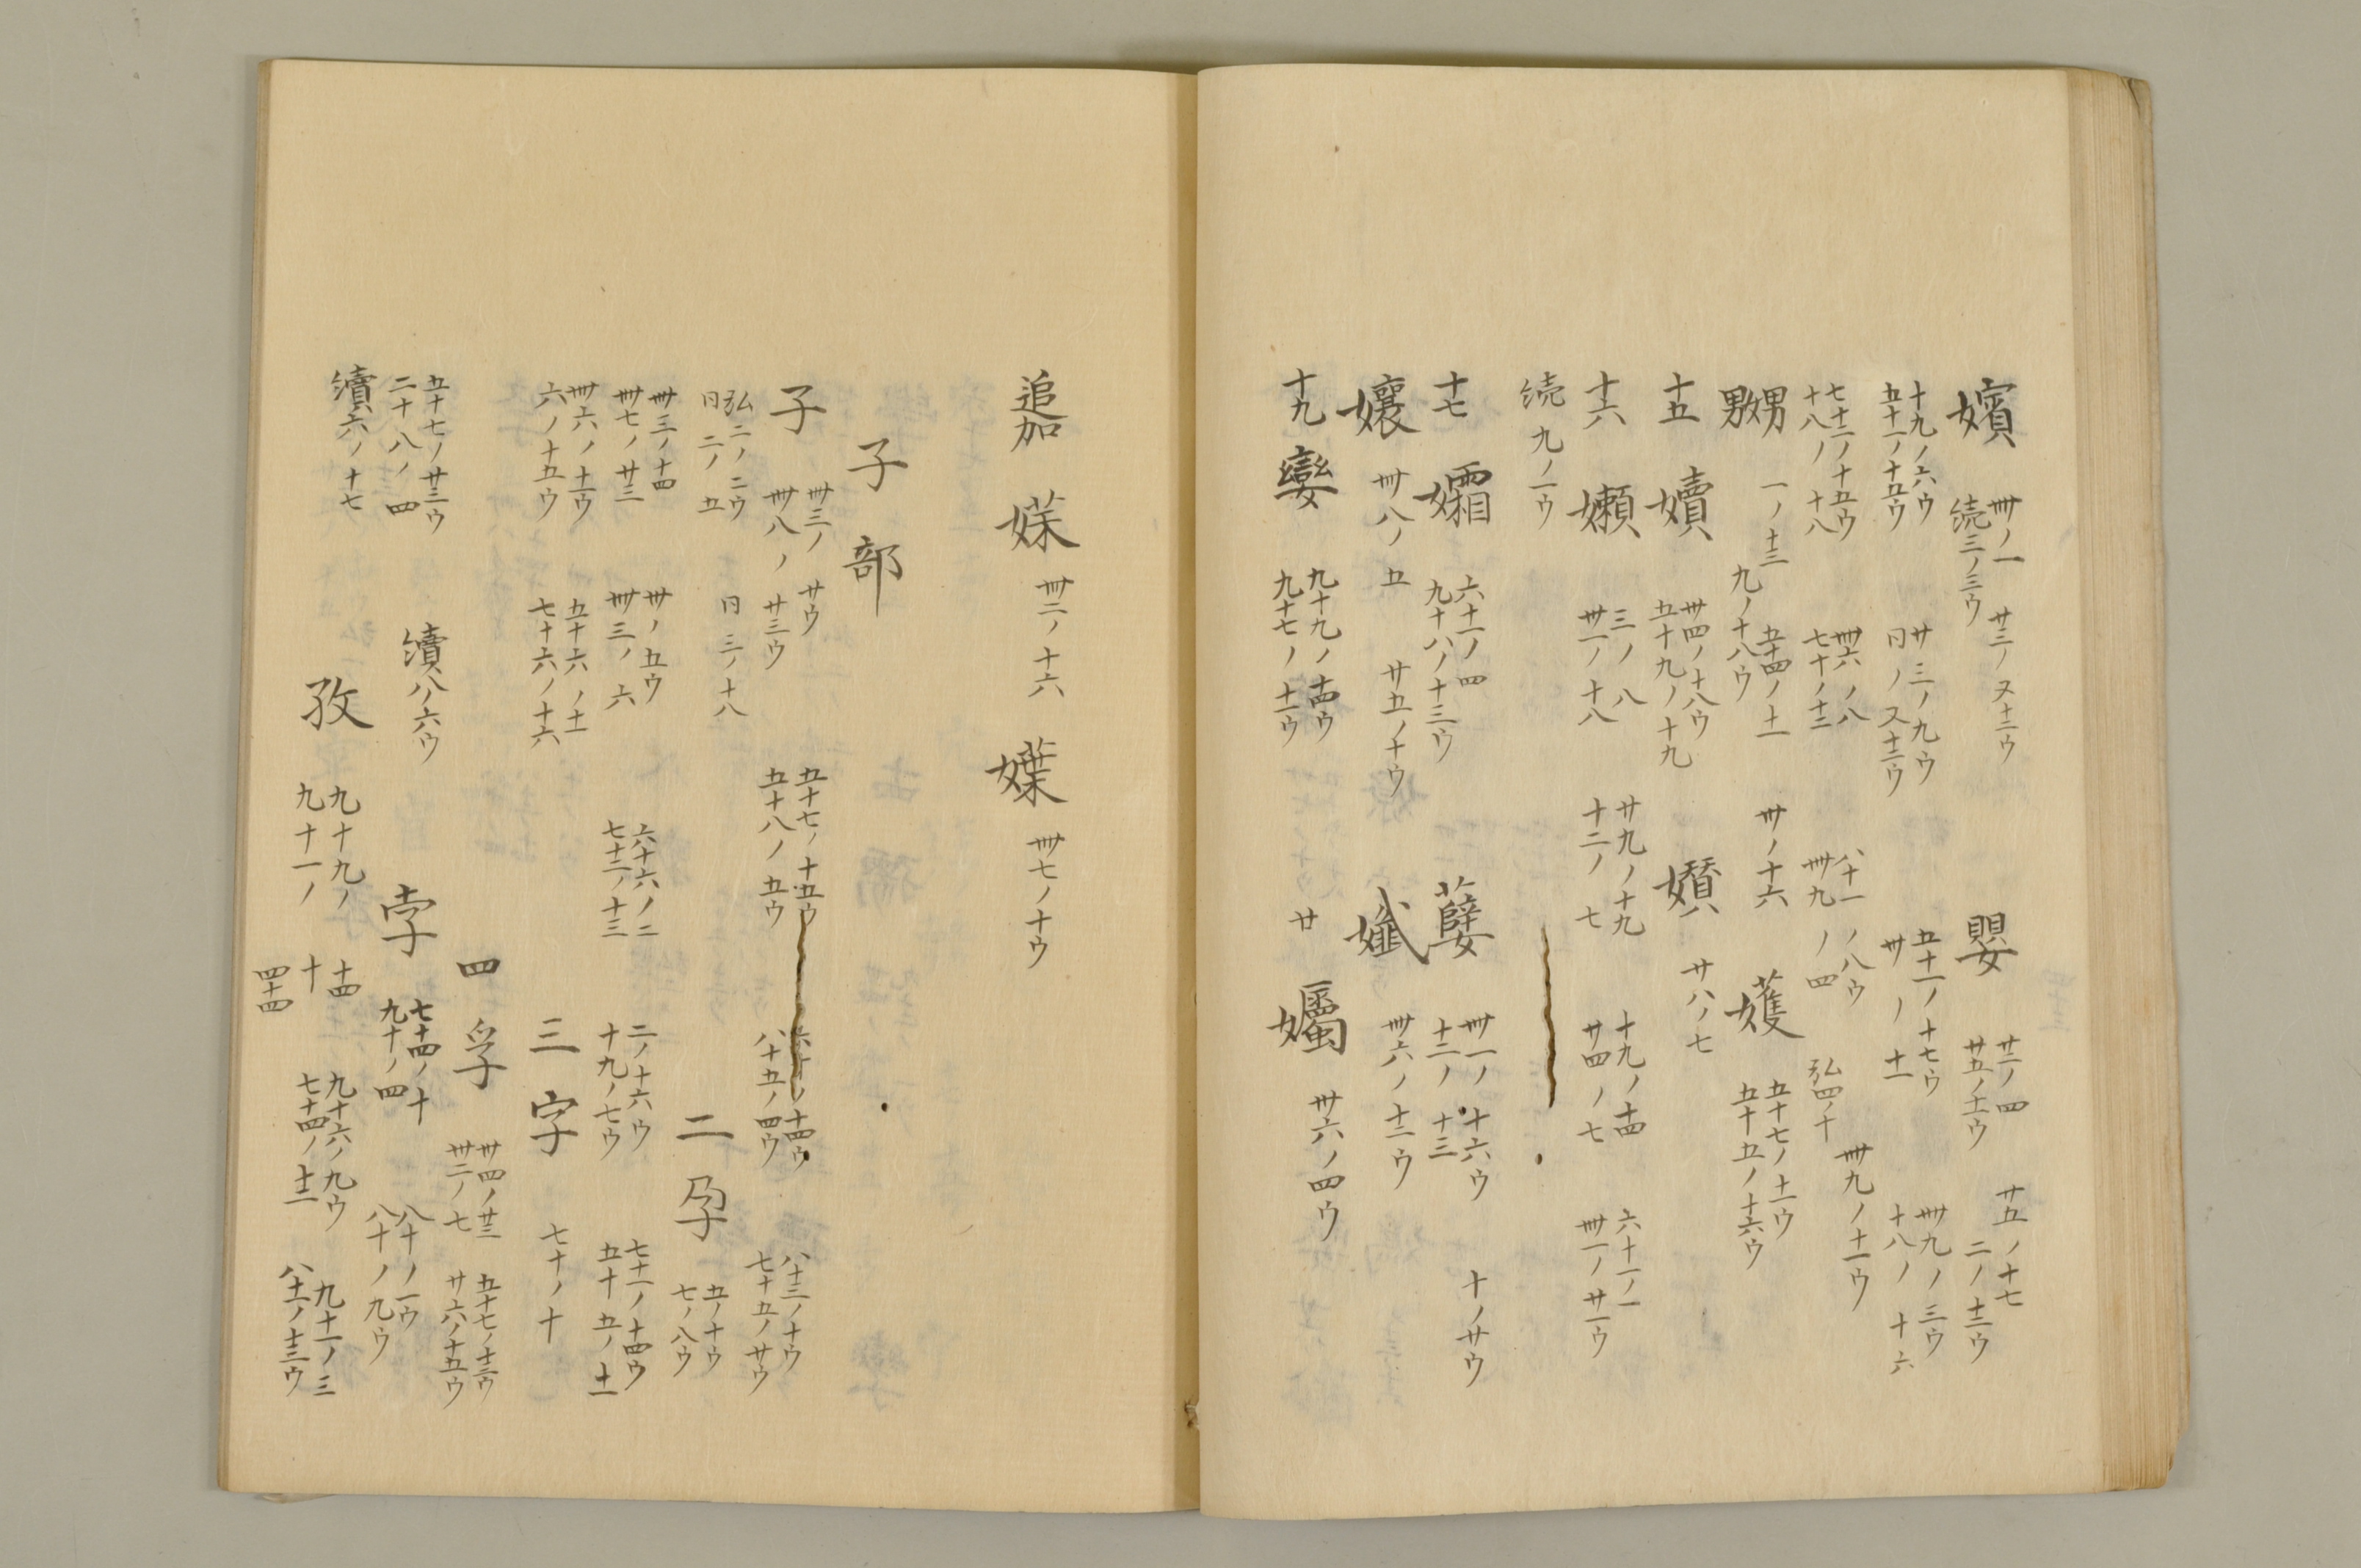 嬪 卌ノ一 廿三ノ又十二ウ 嬰 廿二ノ四 廿五ノ十七
続三ノ三ウ 廿五ノ十一ウ 二ノ十三ウ
十九ノ六ウ 廿三ノ九ウ 五十一ノ十七ウ 卌九ノ三ウ
五十一ノ十五ウ 同ノ又十二ウ 卅ノ十一 十八ノ十六
七十二ノ十五ウ 卌六ノ八 八十一ノ八ウ 卌九ノ十一ウ
十八ノ十八 七十ノ十二 卌九ノ四 弘四ノ十
嬲 一ノ十三 五十四ノ十一 卅ノ十六 嬳 五十七ノ十一ウ
九ノ十八ウ 五十五ノ十六ウ
十五 嬻 廿四ノ十八ウ 嬪 廿八ノ七
五十九ノ十九
十六 嬾 三ノ八 廿九ノ十九 十九ノ十四 六十一ノ一
卅一ノ十八 十二ノ七 廿四ノ七 卅一ノ廿一ウ
続九ノ一ウ
十七 孀 六十一ノ四 卅一ノ十六ウ 十ノ廿ウ
九十八ノ十三ウ 十二ノ十三
孃 卌八ノ五 廿五ノ十ウ 孅 卌六ノ十二ウ
十九 孌 九十九ノ十四ウ 廿 孎 卅六ノ四ウ
九十七ノ十一ウ
追加 媃 卌二ノ十六 卌七ノ十ウ
子部
子 卌三ノ廿ウ 五十七ノ十五ウ 十四ウ 八十三ノ十ウ
卌八ノ廿三ウ 五十八ノ五ウ 八十五ノ四ウ 七十五ノ廿ウ
弘二ノ二ウ 同三ノ十八 二 孕 五ノ十ウ
同二ノ五 七ノ八ウ
卌三ノ十四 卅ノ五ウ 六十六ノ二 二ノ十六ウ 七十一ノ十四ウ
卌七ノ廿三 卌三ノ六 七十二ノ十三 十九ノ七ウ 五十五ノ十一
卌六ノ十一ウ 五十六ノ十一 三 字 七十ノ十
六ノ十五ウ 七十六ノ十六
四 孚 卅四ノ廿三 五十七ノ十三ウ
卌二ノ七 廿六ノ十五ウ
五十七ノ廿三ウ 續八ノ六ウ 孛 七十四ノ十 八十ノ一ウ
二十八ノ四 九十ノ四 八十ノ九ウ
續六ノ十七 孜 九十九ノ十四 九十六ノ九ウ 九十一ノ三
九十一ノ十 七十四ノ十二 八十一ノ十三ウ
四十四